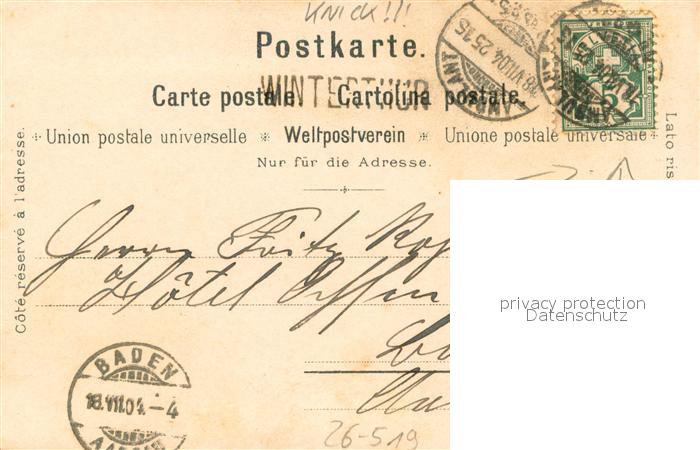 KNICK!!!
Postkarte.
WINTERTHUR
Carte postale. Cartolina postale.
Union postale universelle * Weltpostverein * Unione postale universale
Nur für die Adresse.
Côté réservé à l'adresse.
Lato ris
AMBULANT
18.VII.04
Herrn Fritz
Hôtel
privacy protection
Datenschutz
BADEN
18.VII.04.-4
26-519